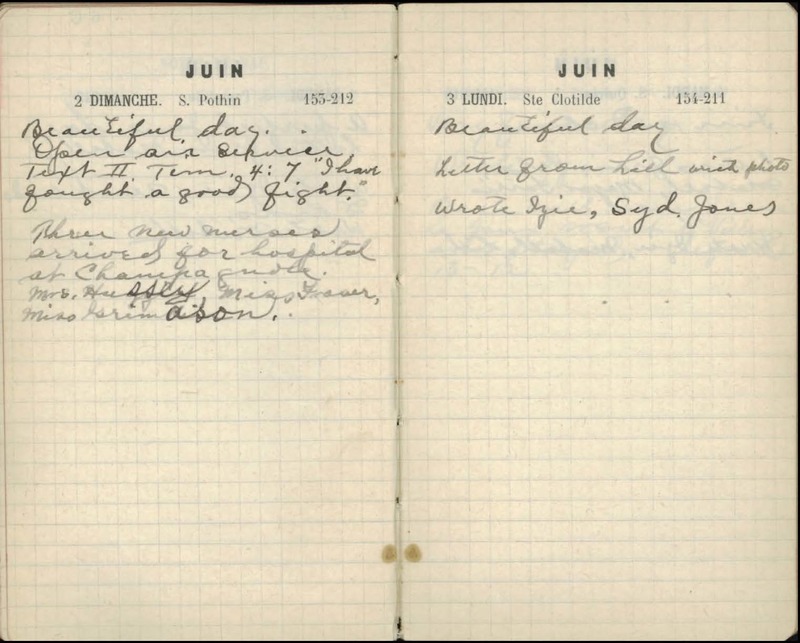 JUIN
2 DIMANCHE. S. Pothin 153-212
Beautiful day.
Open air service,
Text II Tim. 4:7 "I have
fought a good fight."
Three new nurses
arrived for hospital
at Champagnole.
Mrs. Miss Fraser,
Miss Grimdison.
JUIN
3 LUNDI. Ste Clotilde 154-211
Beautiful day
Letter from Lill with photo
Wrote Izie, Syd. Jones